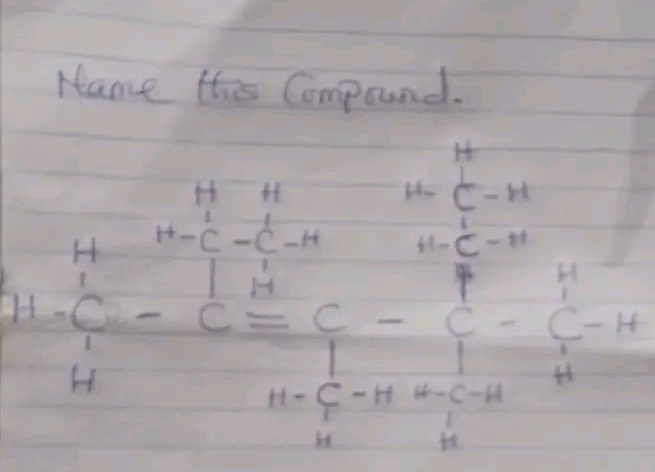 Name this Compound.
H
H H H- C -H
H-C -C-H H-C-H
H H H
H -C - C = C - C - C-H
H H-C-H H-C-H H
H H